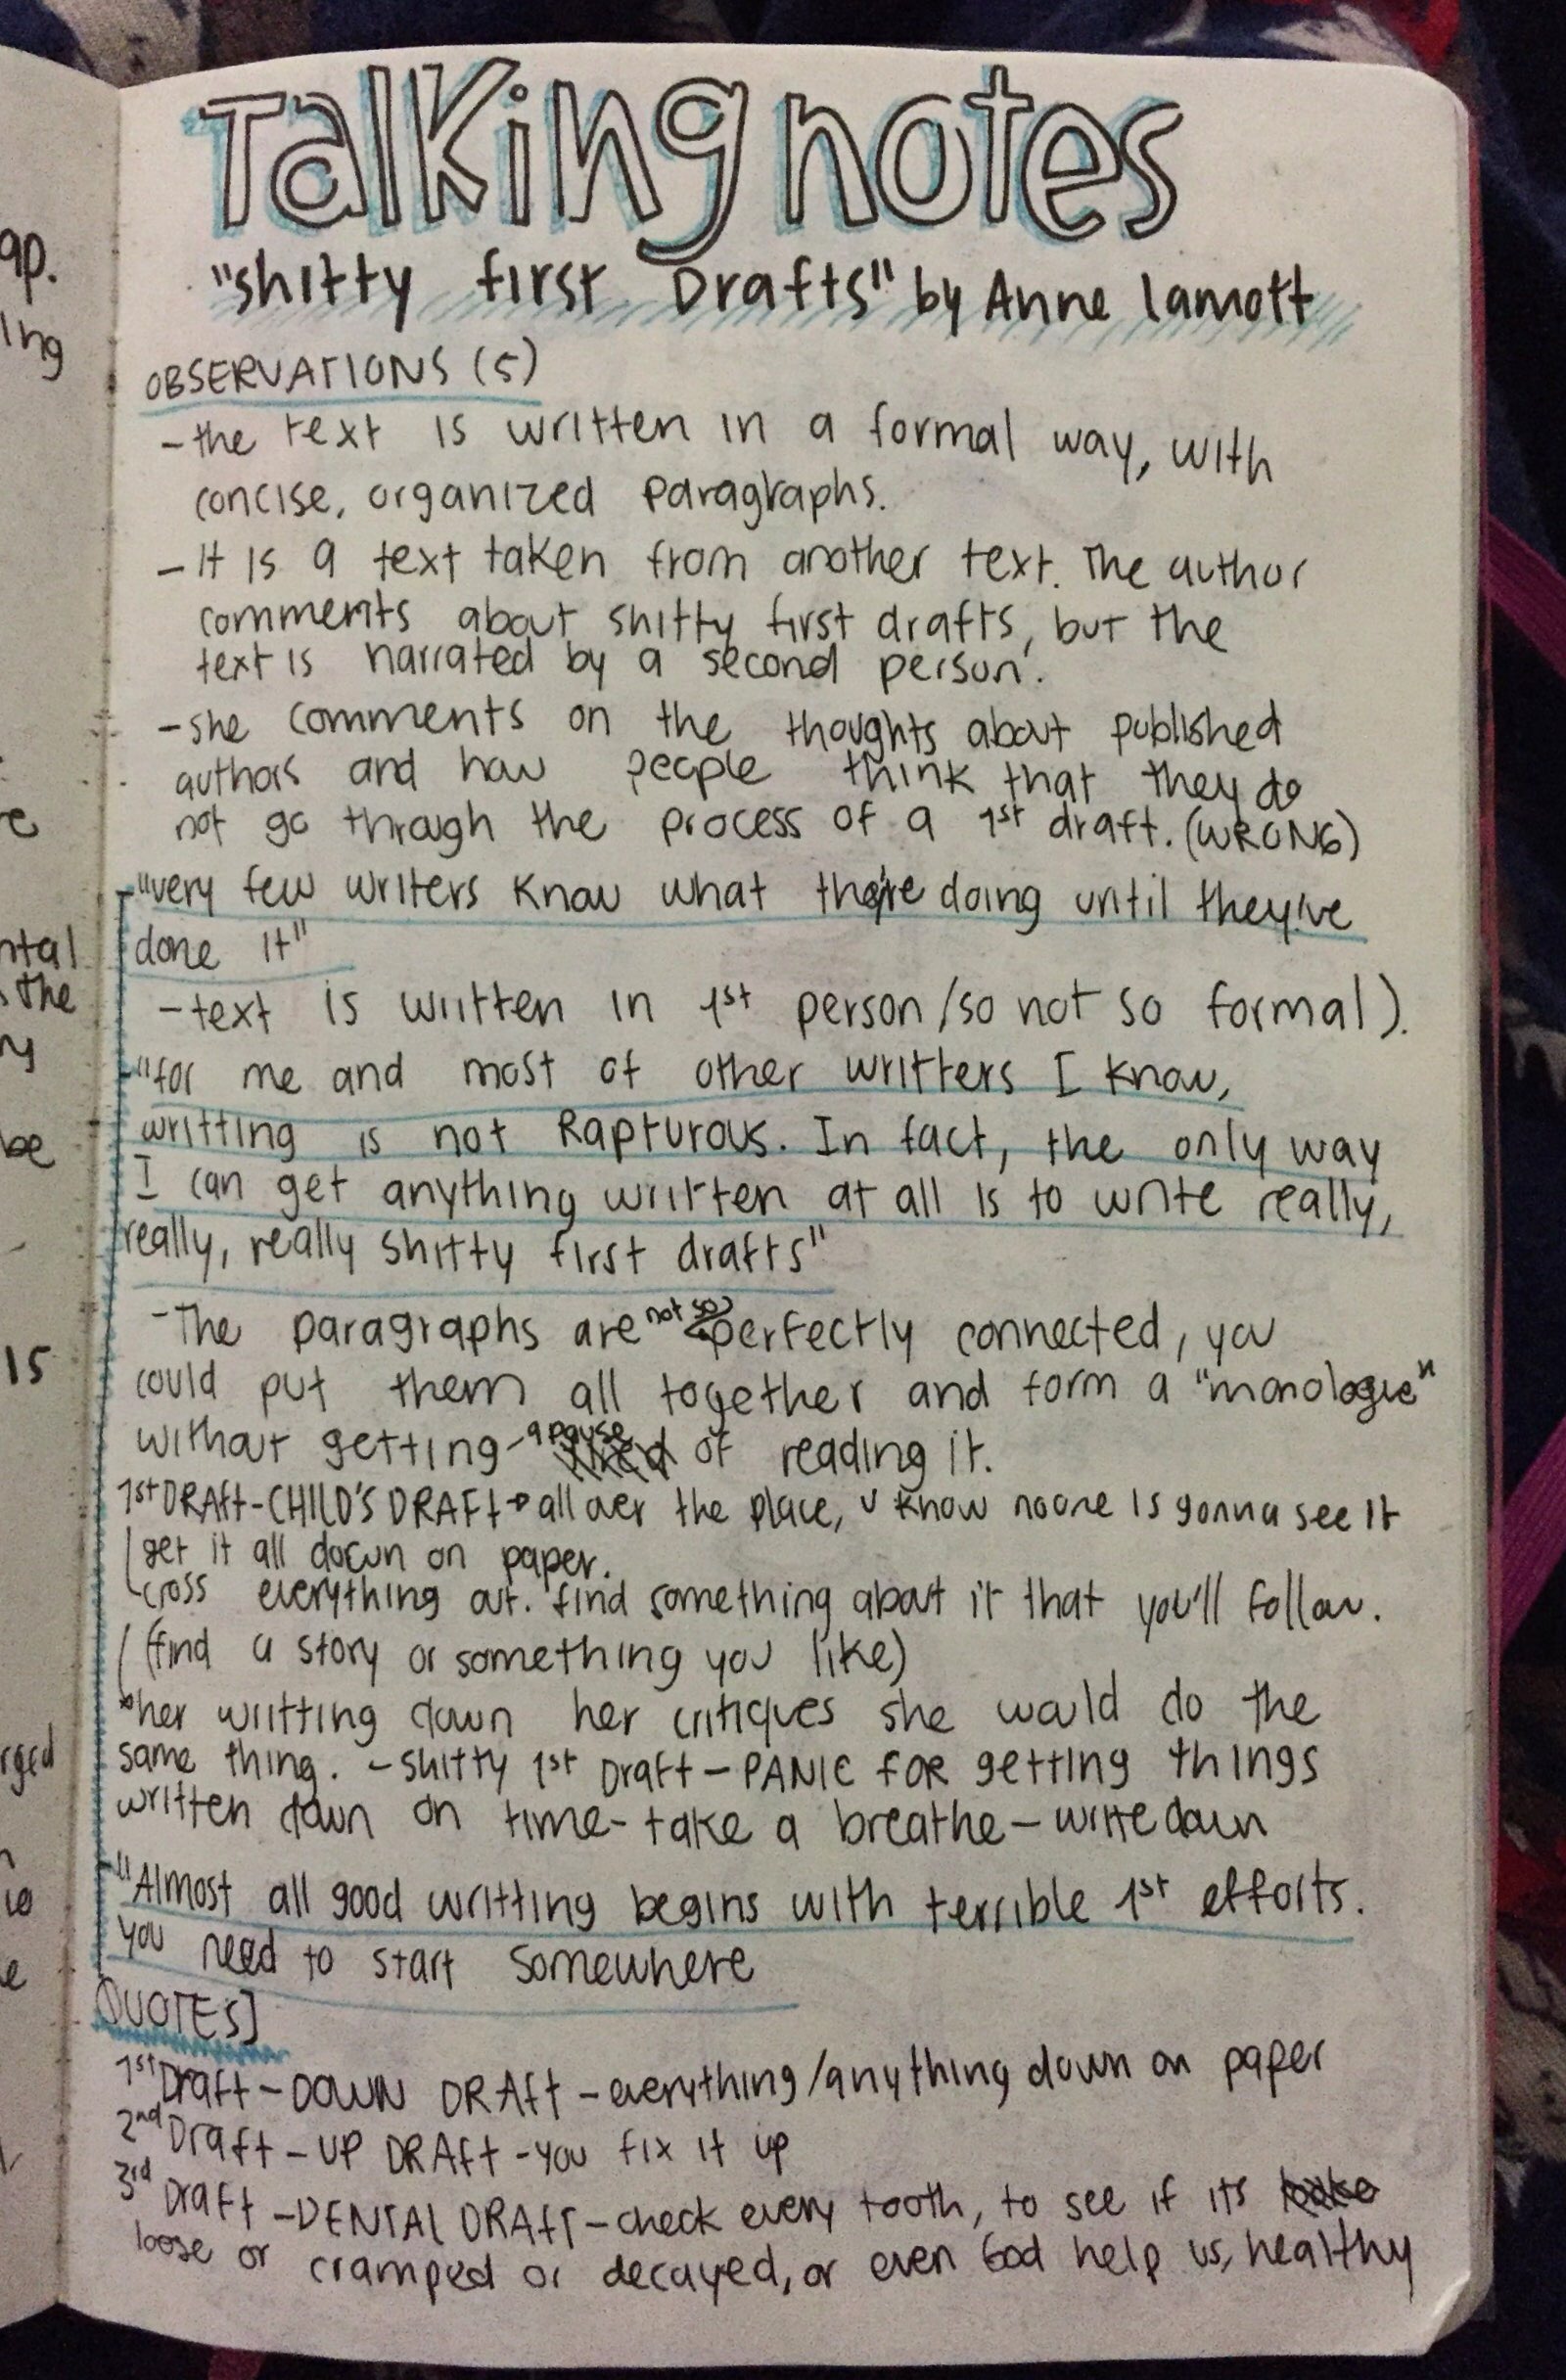 Talking notes
"shitty first Drafts" by Anne lamott
OBSERVATIONS (5)
- the text is written in a formal way, with
concise, organized paragraphs.
- It is a text taken from another text. The author
comments about shitty first drafts, but the
text is narrated by a second person.
- she comments on the thoughts about published
authors and how people think that they do
not go through the process of a 1st draft. (WRONG)
"very few writers know what they're doing until they've
done it"
- text is written in 1st person/so not so formal).
"for me and most of other writters I know,
writting is not Rapturous. In fact, the only way
I can get anything written at all is to write really,
really, really shitty first drafts"
- The paragraphs are not so perfectly connected, you
could put them all together and form a "monologue"
without getting a pause of reading it.
1st DRAft - CHILD'S DRAFt → all over the place, u know no one is gonna see it
get it all down on paper.
cross everything out. find something about it that you'll follow.
(find a story or something you like)
her writting down her critiques she would do the
same thing. - shitty 1st Draft - PANIC FOR getting things
written down on time - take a breathe - write down
"Almost all good writting begins with terrible 1st efforts.
you need to start somewhere
QUOTES]
1st Draft - DOWN DRAft - everything/anything down on paper
2nd Draft - UP DRAft - you fix it up
3rd Draft - DENTAL DRAft - check every tooth, to see if its
loose or cramped or decayed, or even God help us, healthy